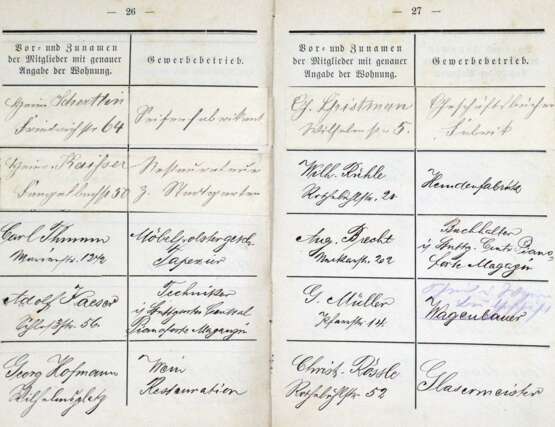 — 26 —
Vor- und Zunamen
der Mitglieder mit genauer
Angabe der Wohnung.
Gewerbebetrieb.
Scherttlin
Friedrichstr 64
Seifenfabrikant
Kaisser
50
Restaurateur
z. Stadtgarten
Carl Thumm
12½
Möbelpolstergesch.
Tapezier
Adolf Kaeser
Schloßstr. 56.
Techniker
i/ Stuttgarter Central
Pianoforte Magazin
Georg Hofmann
Wilhelmsplatz
Wein
Restauration
— 27 —
Vor- und Zunamen
der Mitglieder mit genauer
Angabe der Wohnung.
Gewerbebetrieb.
Ch. Christman
Wilhelmstr. 5.
Geschäftsbücher
Fabrik
Wilh. Rühle
Rothebühlstr. 20
Hemdenfabrik
Aug. Brecht
Neckarstr. 202
Buchhalter
i/ Stuttg. Centr. Piano
forte Magazin
G. Müller
14.
Wagenbauer
Christ. Rössle
Rothebühlstr 52
Glasermeister